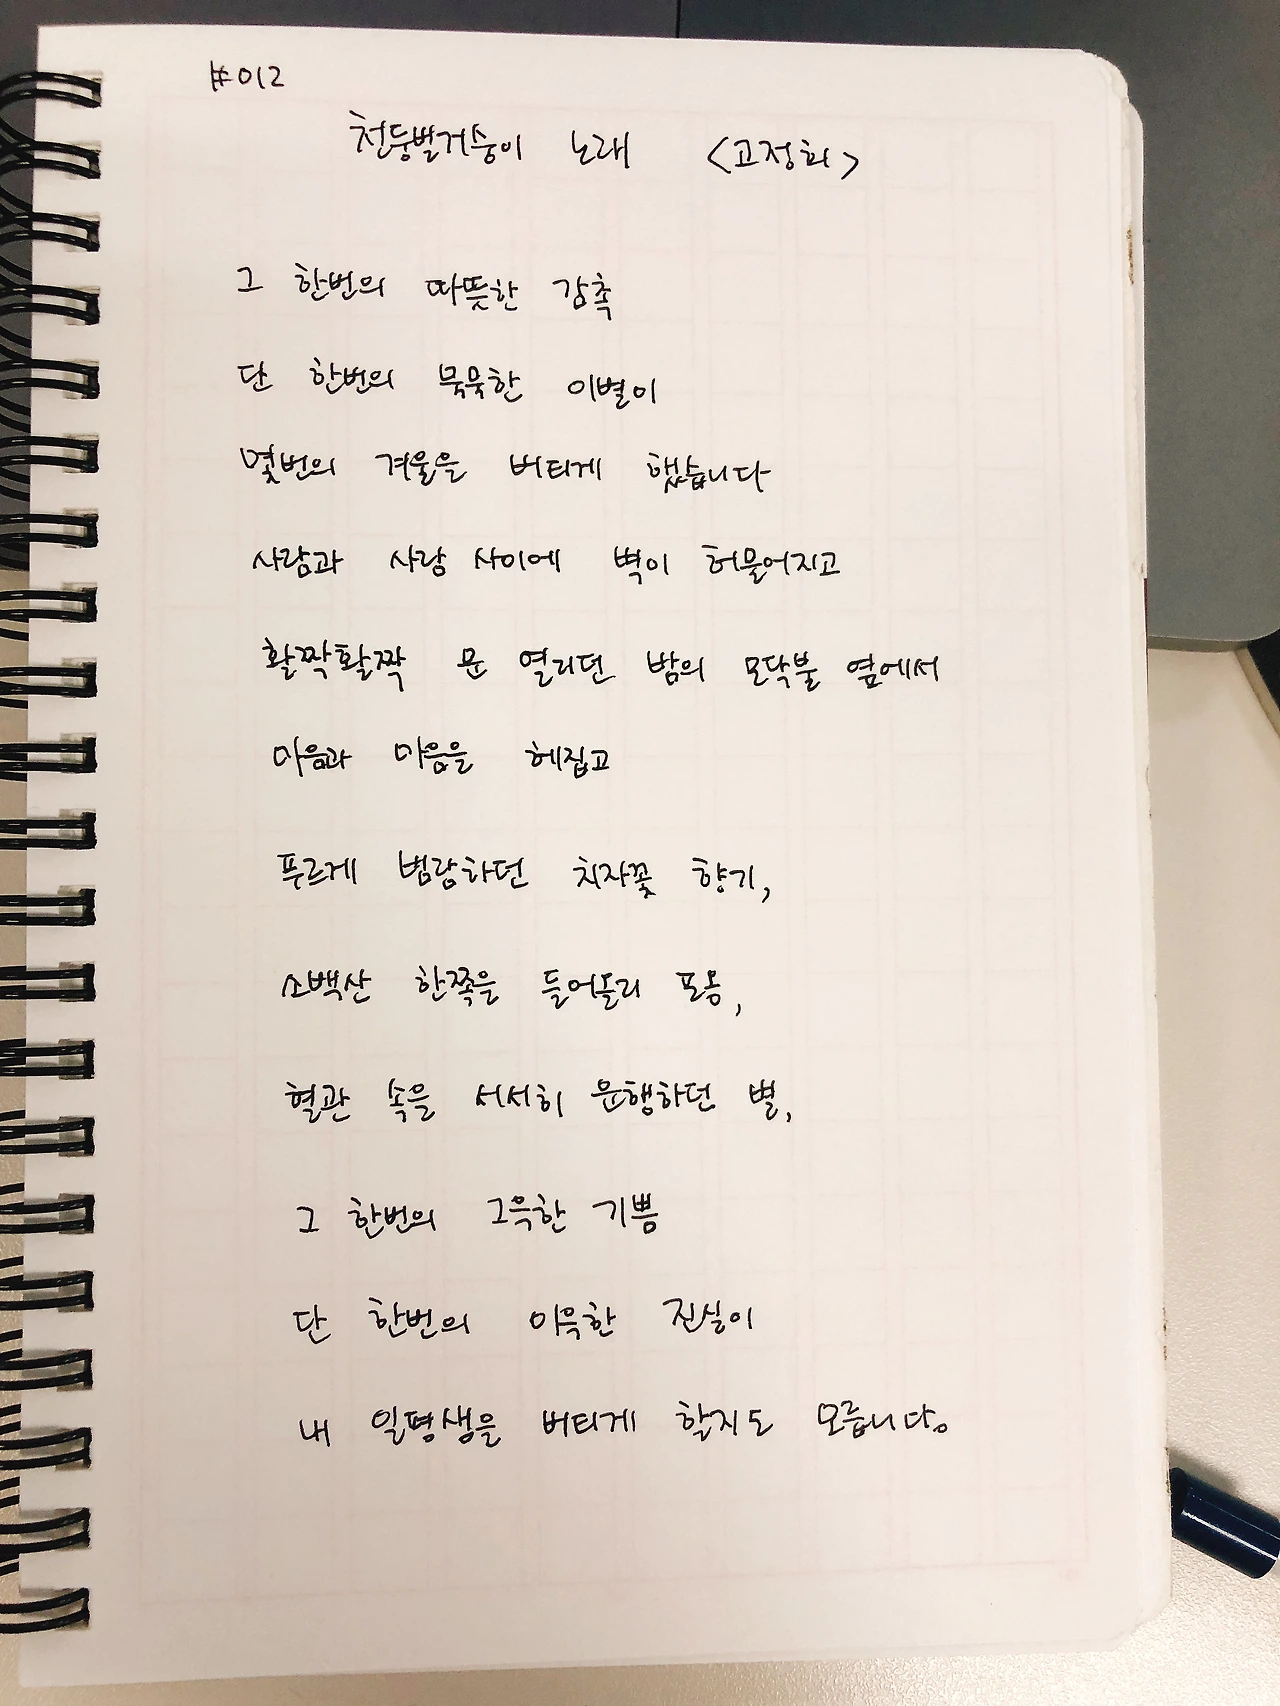 #012
천둥벌거숭이 노래 <고정희>
그 한번의 따뜻한 감촉
단 한번의 묵묵한 이별이
몇번의 겨울을 버티게 했습니다
사람과 사람 사이에 벽이 허물어지고
활짝활짝 문 열리던 밤의 모닥불 옆에서
마음과 마음을 헤집고
푸르게 범람하던 치자꽃 향기,
소백산 한쪽을 들어올리 포옹,
혈관 속을 서서히 운행하던 별,
그 한번의 그윽한 기쁨
단 한번의 이윽한 진실이
내 일평생을 버티게 할지도 모릅니다.